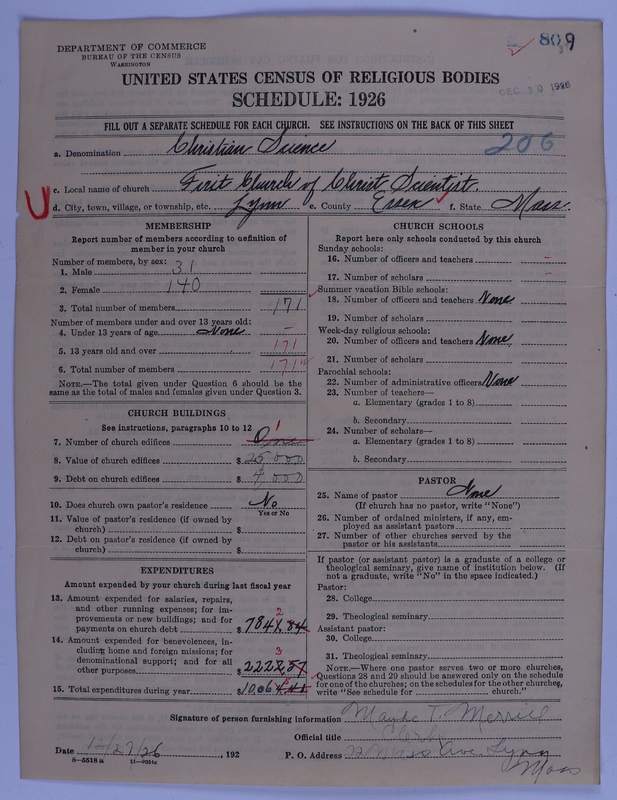 DEPARTMENT OF COMMERCE
BUREAU OF THE CENSUS
WASHINGTON
809
DEC 30 1926
UNITED STATES CENSUS OF RELIGIOUS BODIES
SCHEDULE: 1926
FILL OUT A SEPARATE SCHEDULE FOR EACH CHURCH. SEE INSTRUCTIONS ON THE BACK OF THIS SHEET
206
a. Denomination Christian Science
c. Local name of church First Church of Christ Scientist.
d. City, town, village, or township, etc. Lynn e. County Essex f. State Mass.
MEMBERSHIP
Report number of members according to definition of
member in your church
Number of members, by sex:
1. Male 31
2. Female 140
3. Total number of members 171
Number of members under and over 13 years old:
4. Under 13 years of age None –
5. 13 years old and over 171
6. Total number of members 171
NOTE.—The total given under Question 6 should be the
same as the total of males and females given under Question 3.
CHURCH BUILDINGS
See instructions, paragraphs 10 to 12
7. Number of church edifices One 1
8. Value of church edifices $ 25 000
9. Debt on church edifices $ 000
10. Does church own pastor's residence No
Yes or No
11. Value of pastor's residence (if owned by
church) $
12. Debt on pastor's residence (if owned by
church) $
EXPENDITURES
Amount expended by your church during last fiscal year
13. Amount expended for salaries, repairs,
and other running expenses; for im-
provements or new buildings; and for
payments on church debt $ 7841.84 2
14. Amount expended for benevolences, in-
cluding home and foreign missions; for
denominational support; and for all
other purposes $ 2222.57 3
15. Total expenditures during year $ 10064.41
CHURCH SCHOOLS
Report here only schools conducted by this church
Sunday schools:
16. Number of officers and teachers –
17. Number of scholars –
Summer vacation Bible schools:
18. Number of officers and teachers None
19. Number of scholars
Week-day religious schools:
20. Number of officers and teachers None
21. Number of scholars
Parochial schools:
22. Number of administrative officers None
23. Number of teachers—
a. Elementary (grades 1 to 8)
b. Secondary
24. Number of scholars—
a. Elementary (grades 1 to 8)
b. Secondary
PASTOR
25. Name of pastor None
(If church has no pastor, write "None")
26. Number of ordained ministers, if any, em-
ployed as assistant pastors
27. Number of other churches served by the
pastor or his assistants
If pastor (or assistant pastor) is a graduate of a college or
theological seminary, give name of institution below. (If
not a graduate, write "No" in the space indicated.)
Pastor:
28. College
29. Theological seminary
Assistant pastor:
30. College
31. Theological seminary
NOTE.—Where one pastor serves two or more churches,
Questions 28 and 29 should be answered only on the schedule
for one of the churches; on the schedules for the other churches,
write "See schedule for church."
Signature of person furnishing information Mayde T. Merrill
Official title Clerk
Date 12/27/26, 192 P. O. Address Ave. Lynn
Mass
8-5518 a